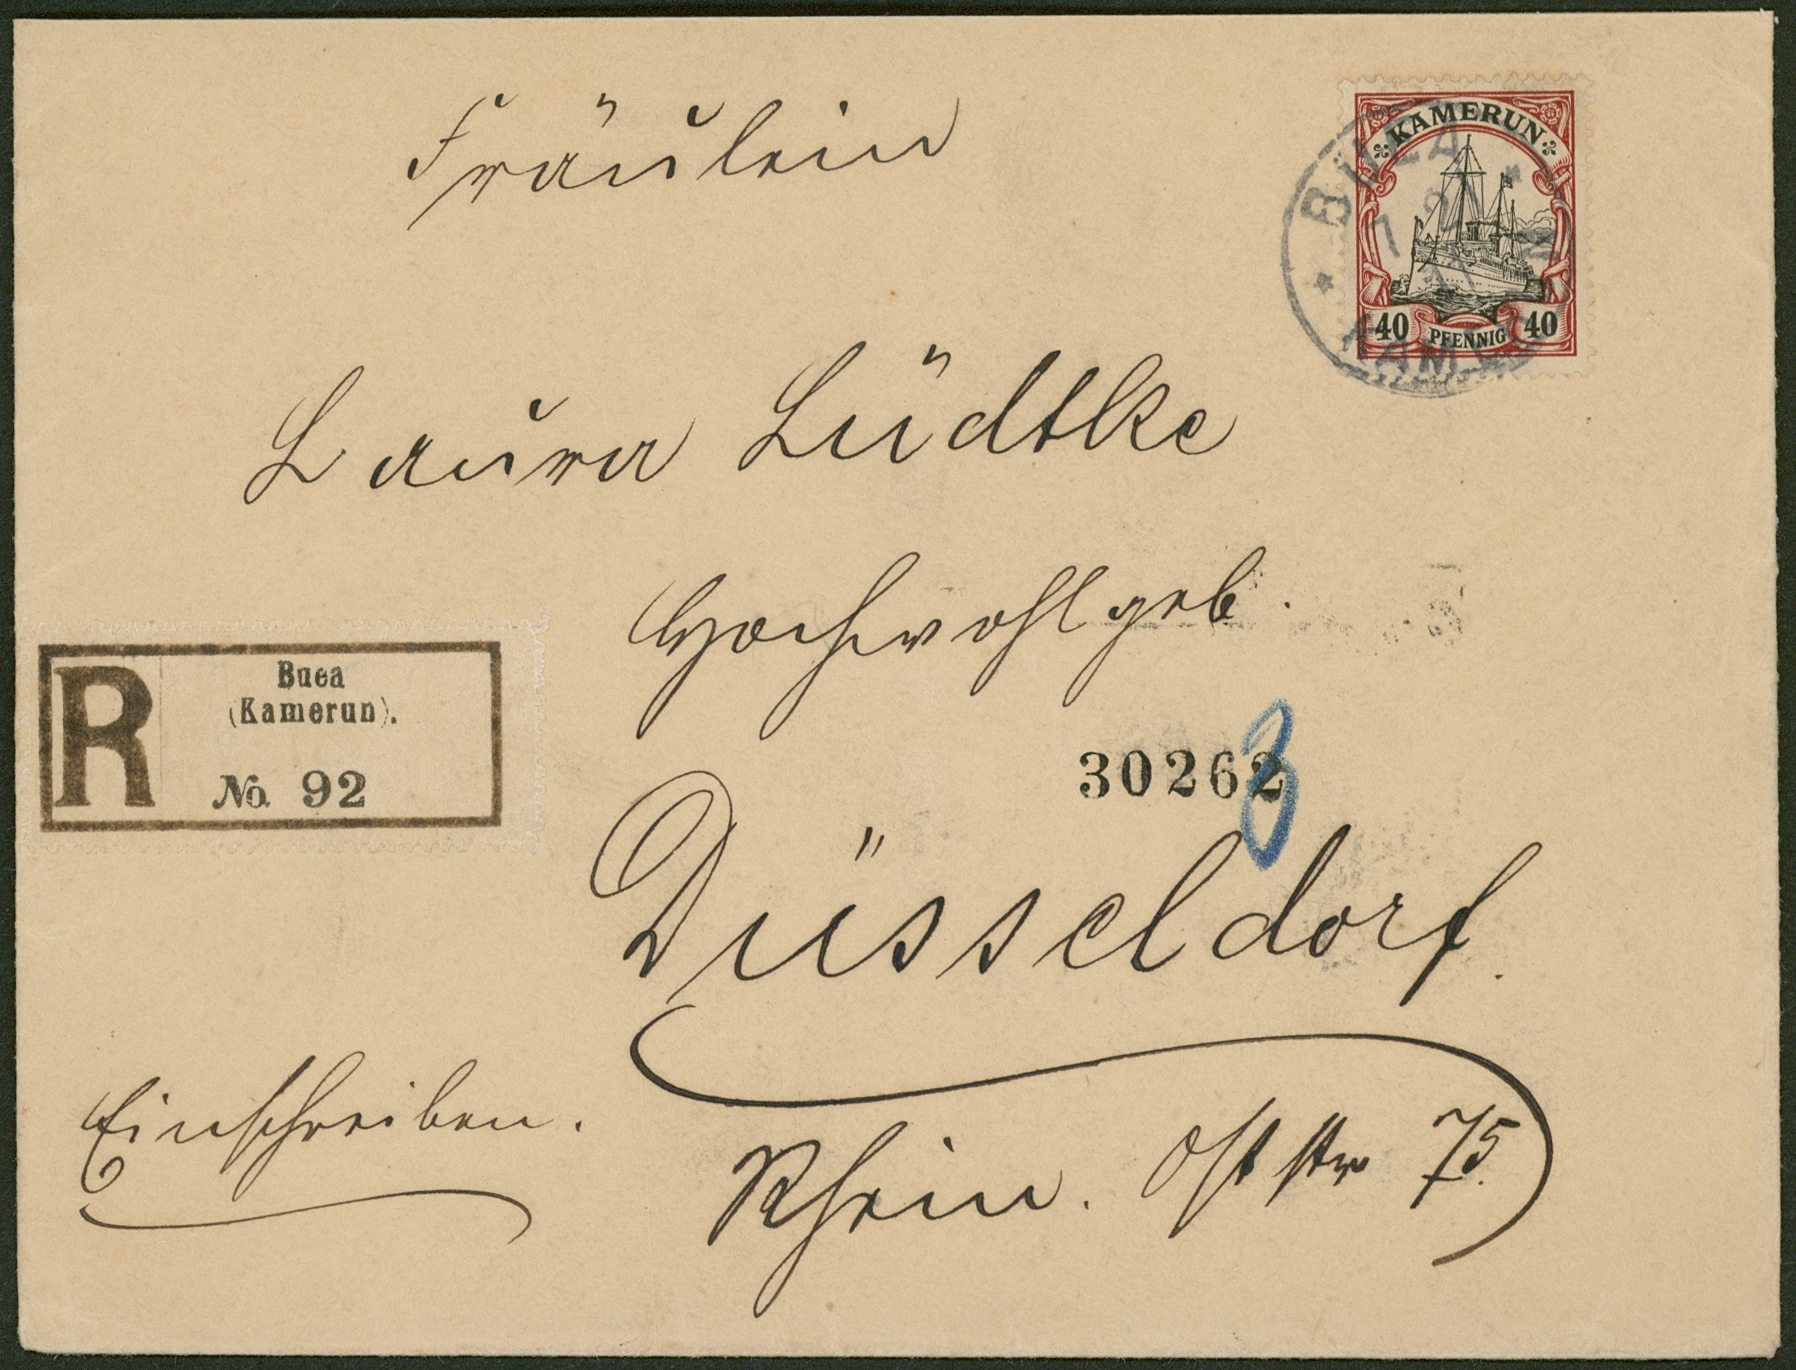 Fräulein
KAMERUN
BUEA
40 PFENNIG 40
Laura Lüdtke
Hochwohlgeb.
R
Buea
(Kamerun).
No. 92
30262
8
Düsseldorf.
Einschreiben.
Rhein. Oststr 75.